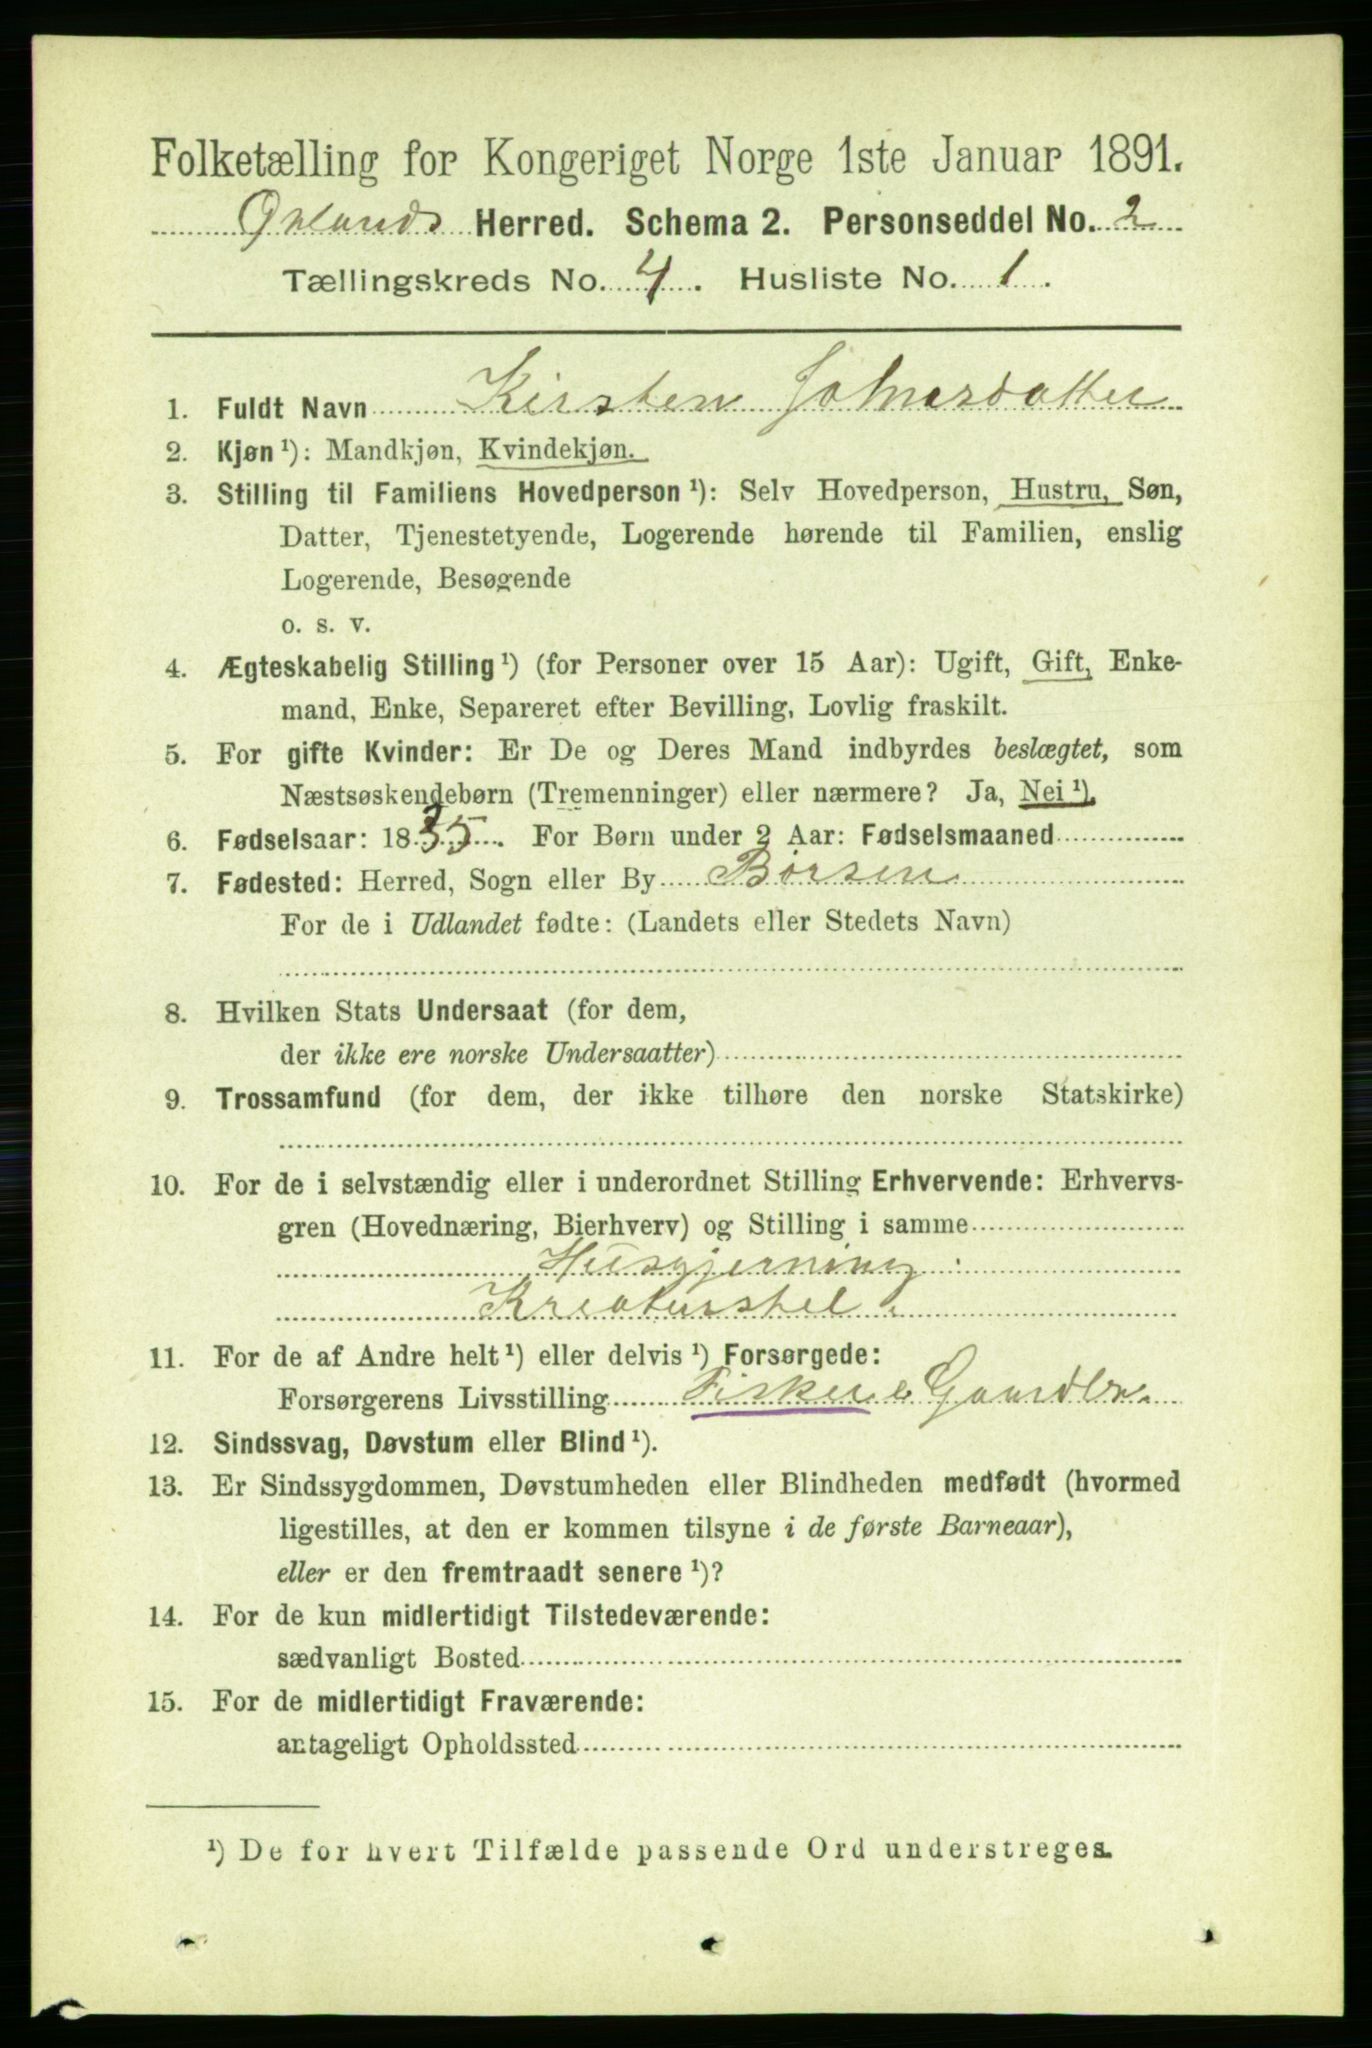 Folketælling for Kongeriget Norge 1ste Januar 1891.
Ørlands Herred. Schema 2. Personseddel No. 2
Tællingskreds No. 4. Husliste No. 1.
1. Fuldt Navn Kirsten Johnsdatter
2. Kjøn ¹): Mandkjøn, Kvindekjøn.
3. Stilling til Familiens Hovedperson ¹): Selv Hovedperson, Hustru, Søn,
Datter, Tjenestetyende, Logerende hørende til Familien, enslig
Logerende, Besøgende
o. s. v.
4. Ægteskabelig Stilling ¹) (for Personer over 15 Aar): Ugift, Gift, Enke-
mand, Enke, Separeret efter Bevilling, Lovlig fraskilt.
5. For gifte Kvinder: Er De og Deres Mand indbyrdes beslægtet, som
Næstsøskendebørn (Tremenninger) eller nærmere? Ja, Nei ¹).
6. Fødselsaar: 1835. For Børn under 2 Aar: Fødselsmaaned
7. Fødested: Herred, Sogn eller By Börsen
For de i Udlandet fødte: (Landets eller Stedets Navn)
8. Hvilken Stats Undersaat (for dem,
der ikke ere norske Undersaatter)
9. Trossamfund (for dem, der ikke tilhøre den norske Statskirke)
10. For de i selvstændig eller i underordnet Stilling Erhvervende: Erhvervs-
gren (Hovednæring, Bierhverv) og Stilling i samme
Husgjerning
Kreaturstel
11. For de af Andre helt ¹) eller delvis ¹) Forsørgede:
Forsørgerens Livsstilling Fisker & Gaardbr.
12. Sindssvag, Døvstum eller Blind ¹).
13. Er Sindssygdommen, Døvstumheden eller Blindheden medfødt (hvormed
ligestilles, at den er kommen tilsyne i de første Barneaar),
eller er den fremtraadt senere ¹)?
14. For de kun midlertidigt Tilstedeværende:
sædvanligt Bosted
15. For de midlertidigt Fraværende:
antageligt Opholdssted
¹) De for hvert Tilfælde passende Ord understreges.